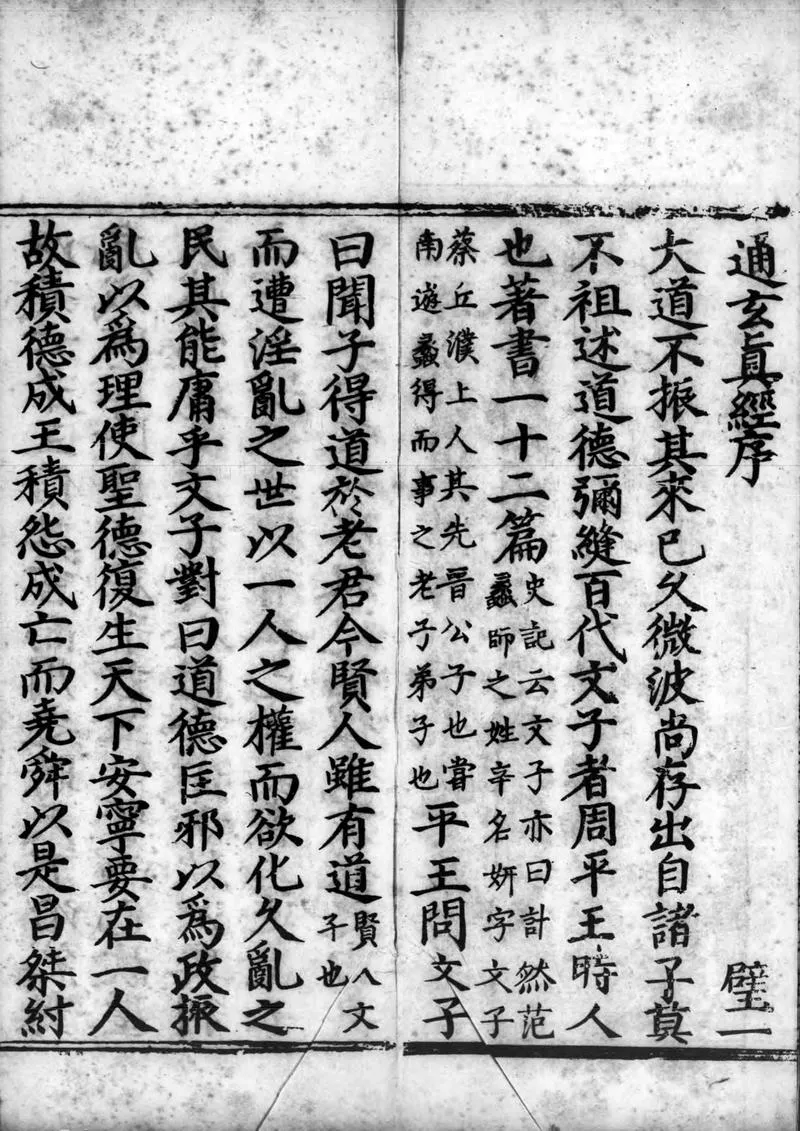 通玄眞經序　璧一
大道不振其來已久微波尚存出自諸子莫
不祖述道德彌縫百代文子者周平王時人
也著書一十二篇史記云文子亦曰計然范
蠡師之姓辛名妍字文子
蔡丘濮上人其先晉公子也嘗
南遊蠡得而事之老子弟子也平王問文子
曰聞子得道於老君今賢人雖有道賢人文
子也
而遭淫亂之世以一人之權而欲化久亂之
民其能庸乎文子對曰道德匡邪以爲政振
亂以爲理使聖德復生天下安寧要在一人
故積德成王積怨成亡而堯舜以是昌桀紂